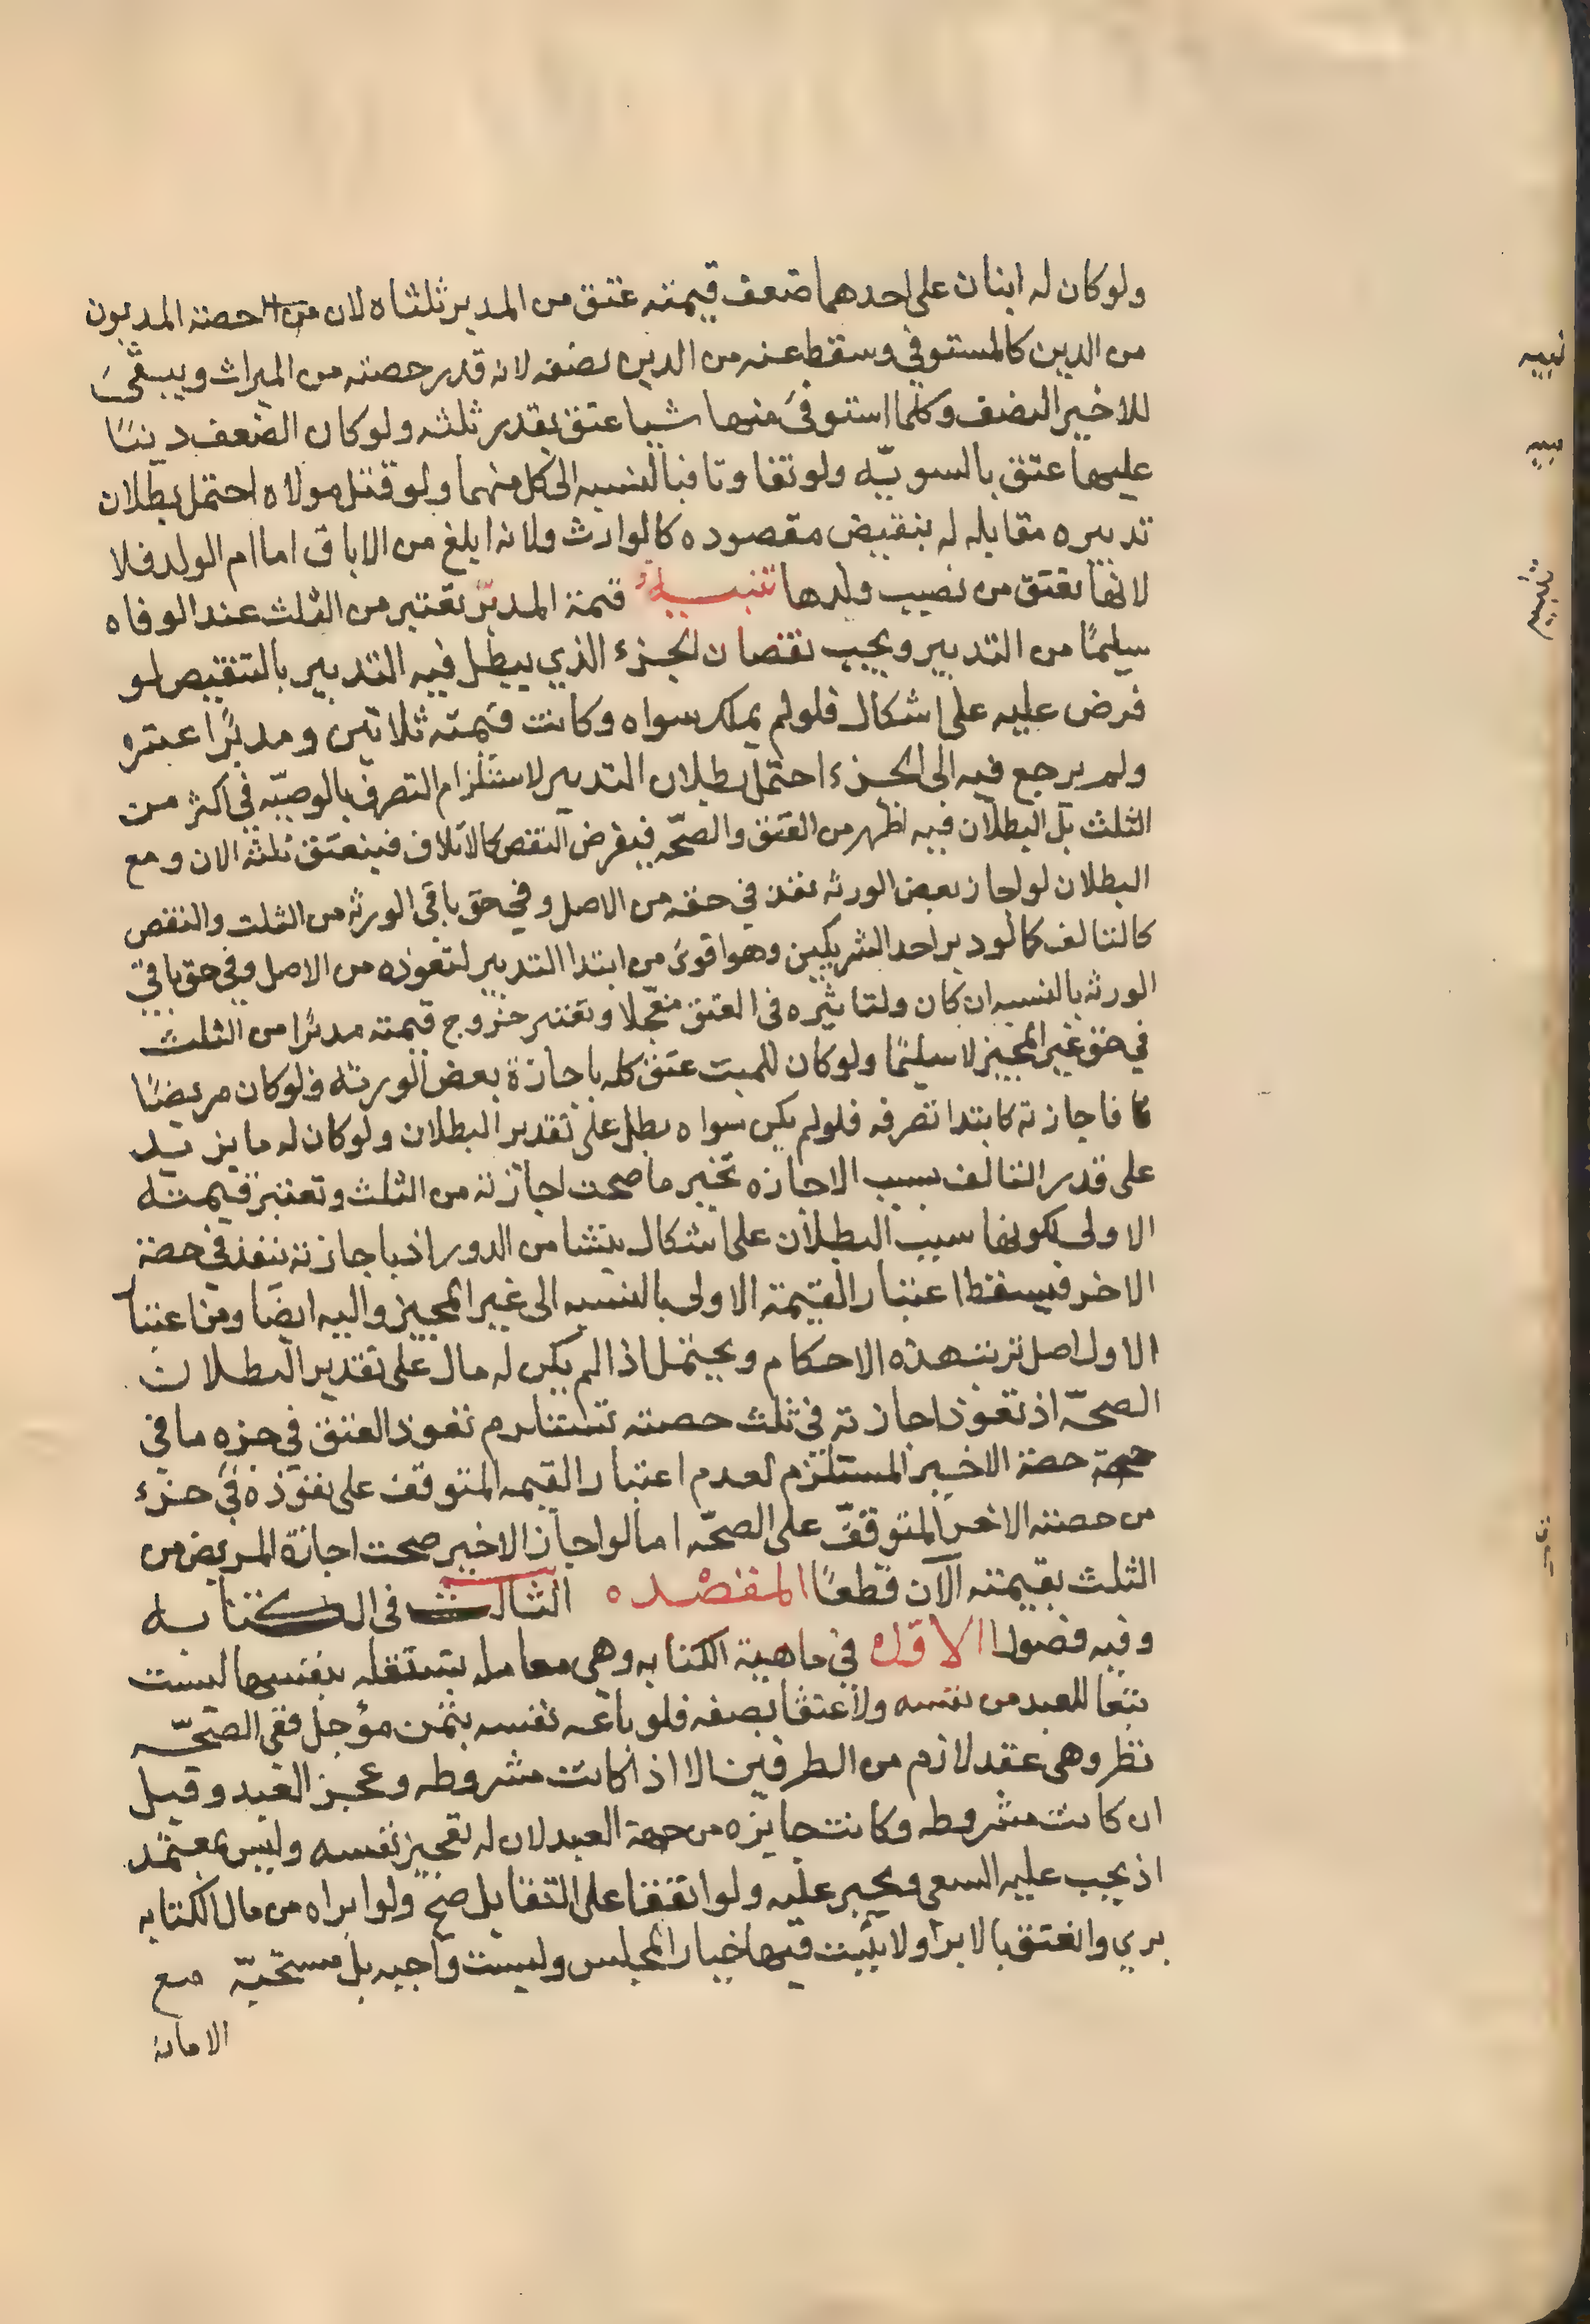 ولو كان له ابنان على احدهما ضعف قيمته عتق من المدبر ثلثاه لان حصته المديون
من الدين كالمستوفي وسقط عنه من الدين نصفه لانه قدر حصته من الميراث ويبقى
للاخير النصف وكلما استوفى منها شيا عتق بقدر ثلثه ولو كان الضعف دينًا
عليهما عتق بالسويّه ولو تفاوتا فبالنسبه الى كل منهما ولو قتل مولاه احتمل بطلان
تدبيره مقابله له بنقيض مقصوده كالوارث ولانه ابلغ من الاباق اما ام الولد فلا
لانها تعتق من نصيب ولدها تنبيه قيمة المدبّر تعتبر من الثلث عند الوفاه
سليمًا من التدبير ويجب نقصان الجزء الذي يبطل فيه التدبير بالتنقيص لو
فرض عليه على اشكال فلو لم يملك سواه وكانت قيمته ثلاثين ومدبرًا عشره
ولم يرجع فيه الى الجزء احتمل بطلان التدبير لاستلزام التصرف بالوصيّه في اكثر من
الثلث بل البطلان فيه اظهر من العتق والصحّه فيفرض النقص كالاتلاف فينعتق ثلثه الان ومع
البطلان لو اجاز بعض الورثه نفذ في حقه من الاصل وفي حق باقى الورثه من الثلث والنقص
كالتالف كما لو دبر احد الشريكين وهو اقوى من ابتدا التدبير لنفوذه من الاصل وفي حق باقي
الورثه بالنسبه ان كان ولتاثيره في العتق معجّلا ويعتبر خروج قيمته مدبرًا من الثلث
في حق غير المجيز لا سليمًا ولو كان للميت عتق كله باجازة بعض الورثه ولو كان مريضًا
فاجازته كابتدا تصرفه فلو لم يكن سواه بطل على تقدير البطلان ولو كان له ما يزيد
على قدر التالف بسبب الاجازه تخير ما صحت اجازته من الثلث وتعتبر قيمته
الاولى لكونها سبب البطلان على اشكال ينشا من الدور اذ باجازته ينفذ في حصة
الاخر فيسقط اعتبار القيمة الاولى بالنسبه الى غير المجيز واليه ايضًا ومن اعتبا
الاول اصل ترتب هذه الاحكام ويحتمل اذا لم يكن له مال على تقدير البطلان
الصحّه اذ نفوذ اجازته في ثلث حصته تستلزم نفوذ العتق في جزء ما في
حصة الاخير المستلزم لعدم اعتبار القيمه المتوقف على نفوذه في جزء
من حصته الاخر المتوقفّ على الصحّه اما لو اجاز الاخير صحت اجازة المريض من
الثلث بقيمته الآن قطعًا المقصد ه الثالث في الكتابه
وفيه فصول الاول في ماهية الكتابه وهي معامله مستقله بنفسها ليست
بيعا للعبد من نفسه ولا عتقا بصفه فلو باعه نفسه بثمن مؤجل ففي الصحّه
نظر وهي عقد لازم من الطرفين الا اذا كانت مشروطه وعجز العبد وقيل
ان كانت مشروطه وكانت جايزه من جهة العبد لان له تعجيز نفسه وليس بمعتمد
اذ يجب عليه السعي ويجبر عليه ولو اتفقا على التقايل صح ولو ابراه من مال الكتابه
بري وانعتق بالابرا ولا يثبت فيها خيار المجلس وليست واجبه بل مستحبّه مع
الامانة